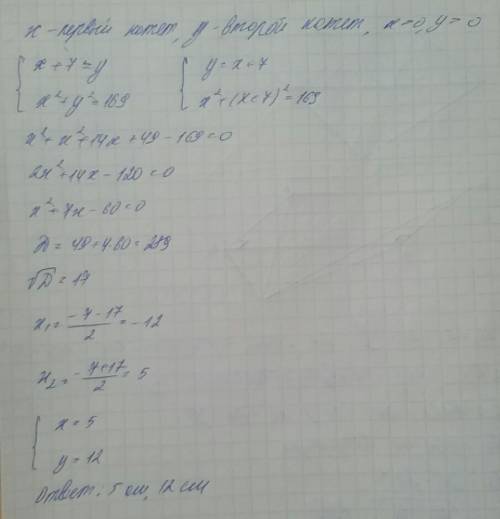 x - первый катет, y - второй катет, x>0, y>0
{ x + 7 = y { y = x + 7
{ x² + y² = 169 { x² + (x+7)² = 169
x² + x² + 14x + 49 - 169 = 0
2x² + 14x - 120 = 0
x² + 7x - 60 = 0
D = 49 + 4·60 = 289
√D = 17
x₁ = (-7-17)/2 = -12
x₂ = (-7+17)/2 = 5
{ x = 5
{ y = 12
Ответ: 5 см, 12 см